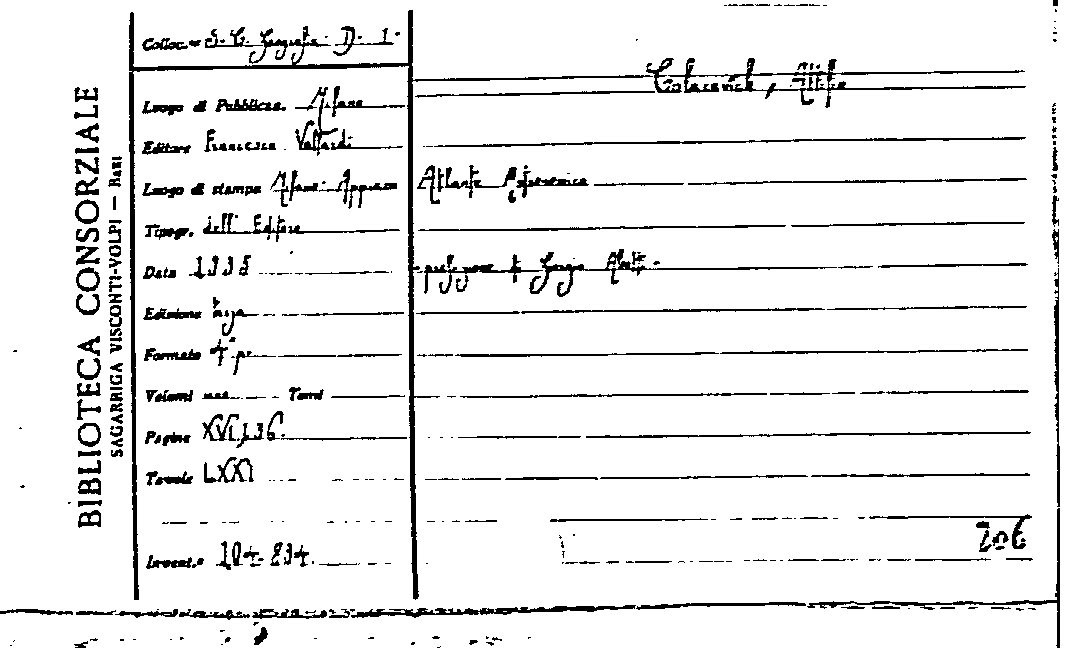 BIBLIOTECA CONSORZIALE
SAGARRIGA VISCONTI-VOLPI — BARI
Colloc.ne S. C. Geografia D. 1.
Luogo di Pubblicaz. Milano
Editore Francesco Vallardi
Luogo di stampa Milano Appiano
Tipogr. dell' Editore
Data 1935
Edizione
Formato 4°
Volumi uno Tomi
Pagine XVI, 136.
Tavole LXXI
Invent.o 104.834.
Colacevich, Attilio
Atlante Astronomico
Giorgio Abetti.
206